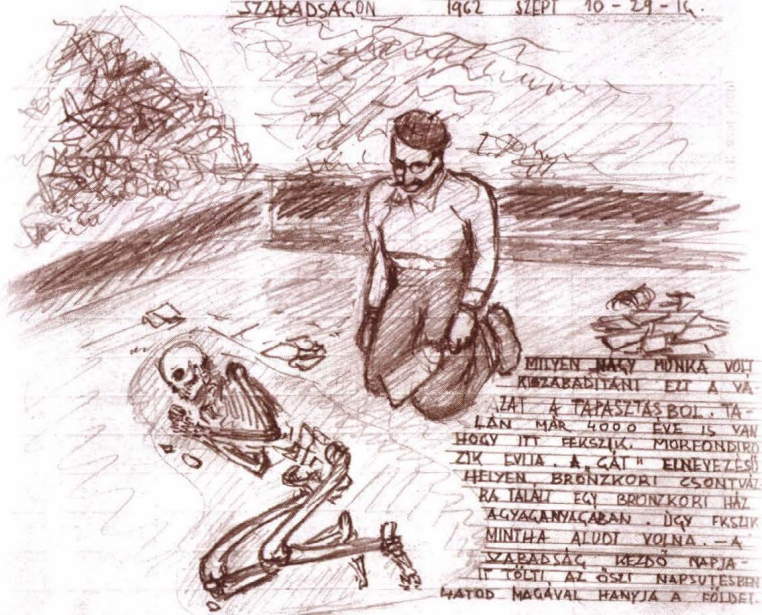 SZABADSÁGON 1962 SZEPT 10-29-IG.
MILYEN NAGY MUNKA VOLT
KISZABADÍTANI EZT A VÁ-
ZAT A TAPASZTÁSBOL. TA-
LÁN MÁR 4000 ÉVE IS VAN
HOGY ITT FEKSZIK. MORFONDIRO
ZIK EVIJA. A „GÁT" ELNEVEZÉSŰ
HELYEN BRONZKORI CSONTVÁZ
RA TALÁLT EGY BRONZKORI HÁZ
AGYAGANYAGÁBAN. ÚGY FKSZIK
MINTHA ALUDT VOLNA. - A
SZABADSÁG KEZDŐ NAPJA-
IT TÖLTI, AZ ŐSZI NAPSÜTÉSBEN
HATOD MAGÁVAL HÁNYJA A FÖLDET.